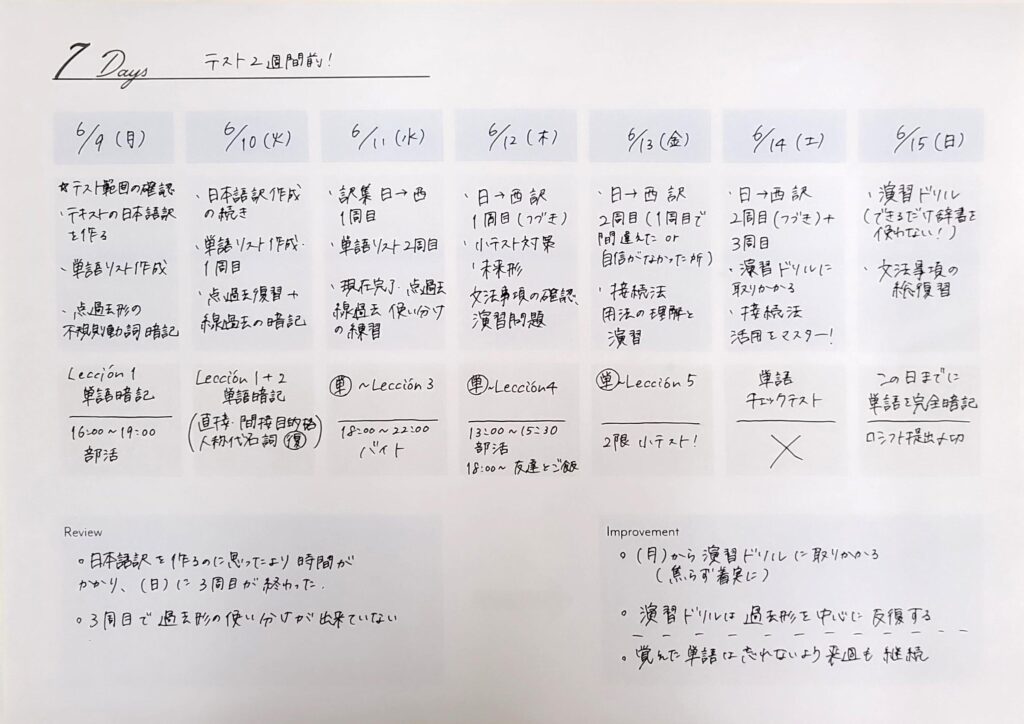 7 Days
テスト2週間前!
6/9(月)
☆テスト範囲の確認
・テキストの日本語訳
を作る
・単語リスト作成
・点過去形の
不規則動詞暗記
Lección 1
単語暗記
16:00~19:00
部活
6/10(火)
・日本語訳作成
の続き
・単語リスト作成・
1周目
・点過去復習+
線過去の暗記
Lección 1+2
単語暗記
(直接・間接目的格
人称代名詞 復)
6/11(水)
・訳集 日→西
1周目
・単語リスト2周目
・現在完了・点過去
線過去 使い分け
の練習
単~Lección 3
18:00~22:00
バイト
6/12(木)
・日→西 訳
1周目(つづき)
・小テスト対策
・未来形
文法事項の確認、
演習問題
単~Lección4
13:00~15:30
部活
18:00~ 友達とご飯
6/13(金)
・日→西 訳
2周目(1周目で
間違えた or
自信がなかった所)
・接続法
用法の理解と
演習
単~Lección 5
2限 小テスト!
6/14(土)
・日→西 訳
2周目(つづき)+
3周目
・演習ドリルに
取りかかる
・接続法
活用をマスター!
単語
チェックテスト
×
6/15(日)
・演習ドリル
(できるだけ辞書を
使わない!)
・文法事項の
総復習
この日までに
単語を完全暗記
□シフト提出〆切
Review
○日本語訳を作るのに思ったより時間が
かかり、(日)に3周目が終わった.
○3周目で過去形の使い分けが出来ていない
Improvement
○(月)から演習ドリルに取りかかる
(焦らず着実に)
○演習ドリルは過去形を中心に反復する
○覚えた単語は忘れないよう来週も継続